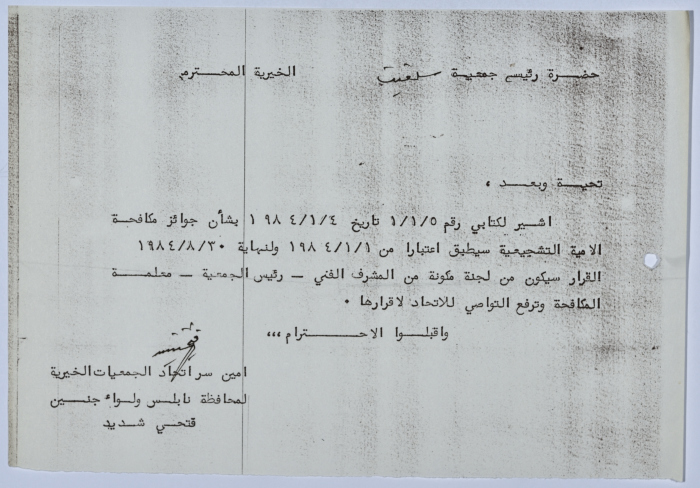 حضرة رئيس جمعية سلفيت الخيرية المحترم
تحية وبعد ،
اشير لكتابي رقم ١/١/٥ تاريخ ١٩٨٤/١/٤ بشأن جوائز مكافحة
الامية التشجيعية سيطبق اعتبارا من ١٩٨٤/١/١ ولنهاية ١٩٨٤/٨/٣٠
القرار سيكون من لجنة مكونة من المشرف الفني – رئيس الجمعية – معلمة
المكافحة وترفع التواصي للاتحاد لاقرارها ٠
واقبلوا الاحترام ،،،
امين سر اتحاد الجمعيات الخيرية
لمحافظة نابلس ولواء جنين
فتحي شديد